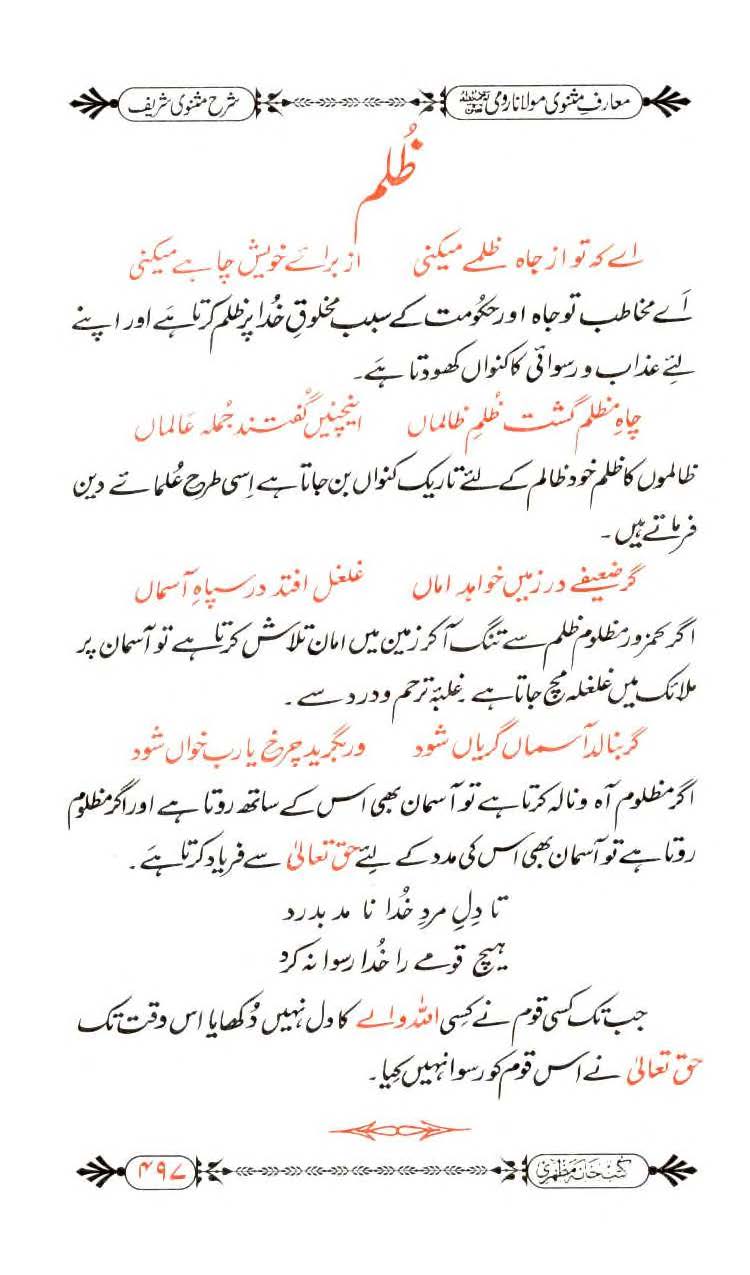 معارفِ مثنوی مولانا رومی رحمۃ اللہ علیہ
شرح مثنوی شریف
ظُلم
اے کہ تو از جاہ ظلمے میکنی از برائے خویش چاہے میکنی
اَے مخاطب تو جاہ اور حکومت کے سبب مخلوقِ خُدا پر ظلم کرتا ہَے اور اپنے
لئے عذاب و رسوائی کا کنواں کھودتا ہَے۔
چاہِ مظلم گشت ظُلمِ ظالماں اینچنیں گُفتند جُملہ عَالماں
ظالموں کا ظلم خود ظالم کے لئے تاریک کنواں بن جاتا ہے اِسی طرح عُلمائے دین
فرماتے ہیں۔
گر ضعیفے در زمیں خواہد اماں غلغل افتد در سپاہِ آسماں
اگر کمزور مظلوم ظلم سے تنگ آ کر زمین میں امان تلاش کرتا ہے تو آسمان پر
ملائک میں غلغلہ مچ جاتا ہے غلبۂ ترحم و درد سے۔
گر بنالد آسماں گریاں شود ور بگرید چرخ یا رب خواں شود
اگر مظلوم آہ و نالہ کرتا ہے تو آسمان بھی اس کے ساتھ روتا ہے اور اگر مظلوم
روتا ہے تو آسمان بھی اس کی مدد کے لئے حق تعالیٰ سے فریاد کرتا ہَے۔
تا دِلِ مردِ خُدا نا مد بدرد
ہیچ قومے را خُدا رسوا نہ کرد
جب تک کسی قوم نے کِسی اللہ والے کا دل نہیں دُکھایا اس وقت تک
حق تعالیٰ نے اس قوم کو رسوا نہیں کِیا۔
کتب خانہ مظہری
۴۹۷